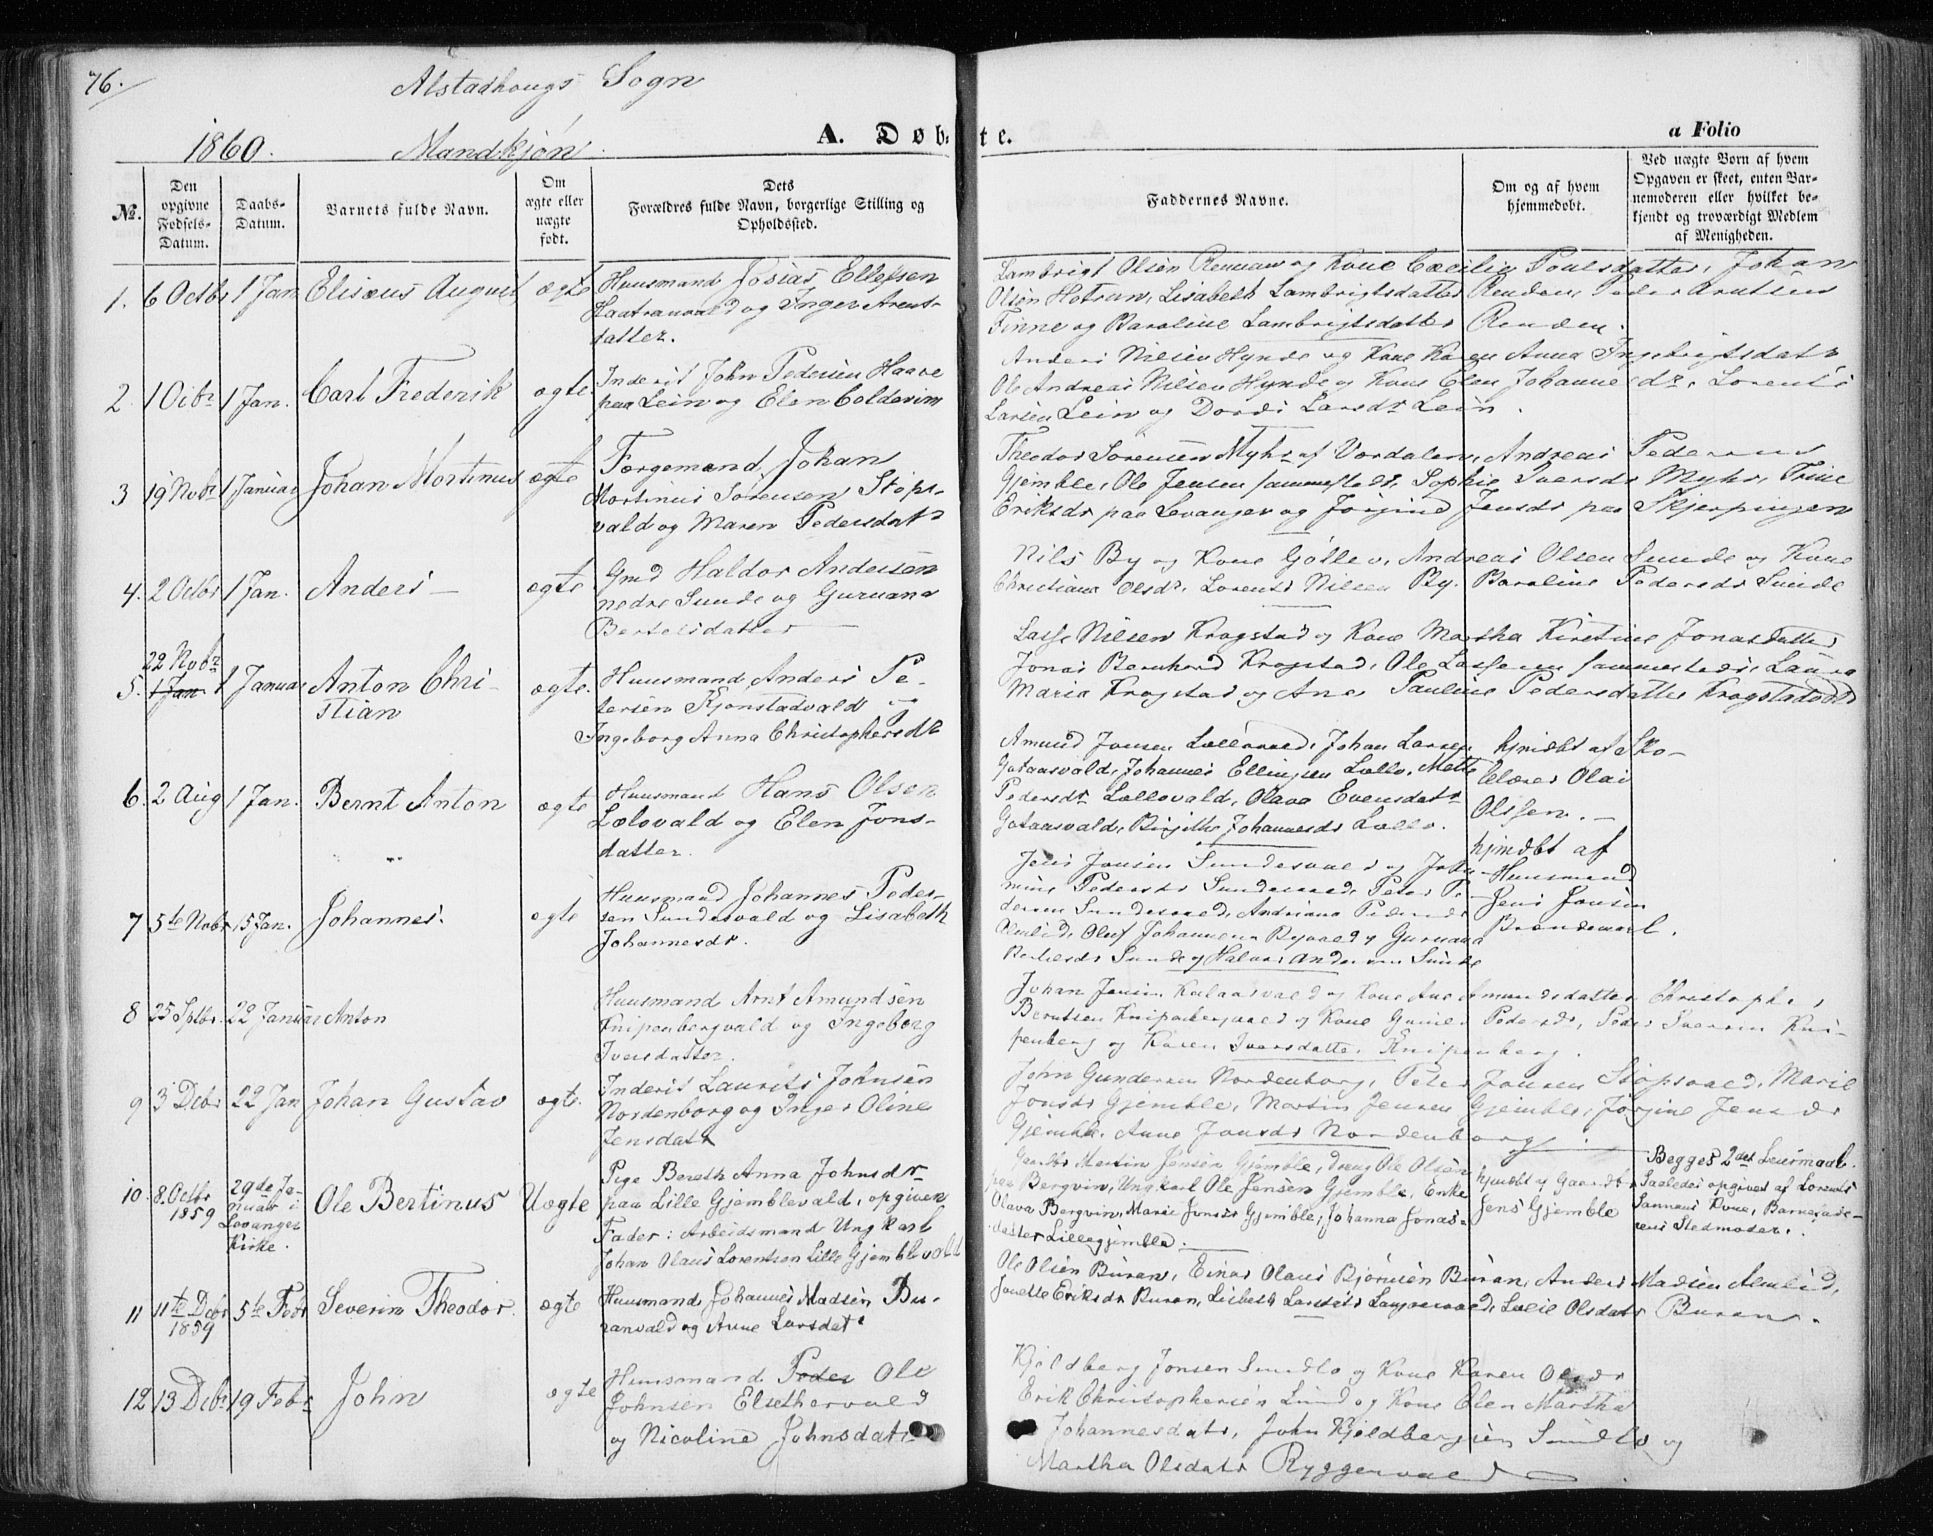 76.
Alstadhougs Sogn
1860. Mandkjøn.
A. Døbte.
a Folio
№.
Den opgivne Fødsels-Datum.
Daabs-Datum.
Barnets fulde Navn.
Om ægte eller uægte født.
Dets Forældres fulde Navn, borgerlige Stilling og Opholdssted.
Faddernes Navne.
Om og af hvem hjemmedøbt.
Ved uægte Børn af hvem Opgaven er skeet, enten Barnemoderen eller hvilket bekjendt og troværdigt Medlem af Menigheden.
1. 6 Octbr 1 Jan Elisæus August ægte Huusmand Josias Ellefsen
Haatranvald og Inger Arent-
datter.
Lambrigt Olsen Renuaw og Kone Cæcilie Poulsdatter, Johan
Olsøn Hotran, Lisabeth Lambrigtsdatter Renden, Peder Arntsen
Finne og Baroline Lambrigtsdatter Renden.
2. 1 Octbr 1 Jan. Carl Frederik ægte. Inderst John Pedersen Haave
paa Lein og Elen Coldevin
Anders Nilsen Hynde og Kone Karen Anna Ingebrigtsdatr
Ole Andreas Nilsen Hynde og Kone Elen Johannesdr. Lorents
Larsen Lein og Dordi Larsdr Lein.
3 19 Nobr 1 Januar Johan Mortinus ægte Færgemand Johan
Mortinus Sørensen Støps-
vald og Maren Pedersdatr
Theodor Sørensen Myhr af Værdalen, Andreas Pedersen
Gjemble, Ole Jensen sammesteds, Sophie Iversdr Myhr, Trine
Eriksdr paa Levanger og Jørgine Jensdr paa Skjerpingen
4. 2 Octbr 1 Jan. Anders — ægte Gmd Haldor Andersen
nedre Sunde og Guruana
Bertelsdatter —
Nils By og Kone Gölle v. Andreas Olsen Sunde og Kone
Christiana Olsdr. Lorents Nilsen By. Baroline Pedersdr Sunde
5. 22 Nobr 1 Jan 1 Januar Anton Chri-
stian ægte. Huusmand Anders Pe-
tersen Kjønstadvald og
Ingeborg Anna Christophersdr
Lasse Nilsen Kragstad og Kone Martha Kirstine Jonasdatter
Jonas Bernhard Kragstad, Ole Lassesen sammesteds, Laura
Maria Kragstad og Ane Pauline Pedersdatter Kragstadvald
6. 2 Aug 1 Jan. Bernt Anton ægte Huusmand Hans Olsen
Lælovald og Elen Jons-
datter.
Amund Jonsen Lællovald, Johan Larsen
Gotaasvald, Johannes Ellingsen Lællo, Mette
Pedersdr Lællovald, Olava Evensdatr
Gotaasvald, Birgithe Johannesdr Lællo.
hjmdøbt af Sko-
lelærer Olai
Olssen. —
7 5te Nobr 15 Jan. Johannes. ægte Huusmand Johannes Peder-
sen Sundesvald og Lisabeth
Johannesdr.
Jens Jonsen Sundesvald og
mine Pedersdr Sundesvald, Peter Pe-
dersen Sundesvald, Andriana Pedersdr
Almlid, Oluf Johannesen Byvald og Guruana
Bertelsdr Sunde og Halvor Andersen Sunde
hjmdøbt af
Huusmand
Jens Jonsen
8 25 Sptbr. 22 Januar Anton Huusmand Arnt Amundsen
Knipenbergvald og Ingeborg
Iversdatter.
Johan Jensen og Kone Ane Amundsdatter Christopher
Berntsen Knipenbergvald og Kone Pedersdr, Peder Iversen Kni-
penberg og Karen Iversdatter Knipenberg.
9 3 Debr 22 Jan Johan Gustav ægte. Inderst Laurits Johnsen
Nordenborg og Inger Oline
Jensdatr
John Gundersen Nordenborg, Peter Jonsen Støpsvald, Marie
Jonsdr Gjemble, Martin Jensen Gjemble, Jørgine Jensdr
Gjemble. Anne Jonsdr Nordenborg.
10. 8. Octbr 1859 29de Januar i Levanger Kirke. Ole Bertinus Uægte Pige Bereth Anna Johnsdr
paa Lille Gjemblevald, opgiven
Fader: Arbeidsmand Ungkarl
Johan Olaus Lorentsen Lille Gjemblevald
Gaardbr Martin Jensen Gjemble, dreng Ole Olsen
paa Bergvin, Ungkarl Ole Jensen Gjemble, Enke
Olava Bergvin, Marie Jonsdr Gjemble, Johanna Jonas-
datter Lillegjemble.
hjmdøbt af Gaardbr
Jens Gjemble
Begges 2det Leiermaal.
Saaledes opgivet af Lorents
Sannens Kone, Barnefade-
rens Stedmoder.
11 11te Debr 1859 5te Febr Severin Theodor. ægte Huusmand Johannes Madsen Bu-
ranvald og Anne Larsdatr
Ole Olsen Buran, Einar Olaus Bjørnsen Buran, Anders Madsen Almlid,
Jonette Eriksdr Buran, Lisbeth Larsdatr, Lucie Olsdatr Buran.
12 13 Debr 19 Febr John ægte Huusmand Peder Ole
Johnsen Elsethvald
og Nicoline Johnsdatr
Kjeldberg Jonsen Sundlo og Kone Karen Olsdr
Erik Christophersen Lund og Kone Elen Martha
Johannesdatr, John Kjeldbergsen Sundlo og
Martha Olsdatr Ryggervald